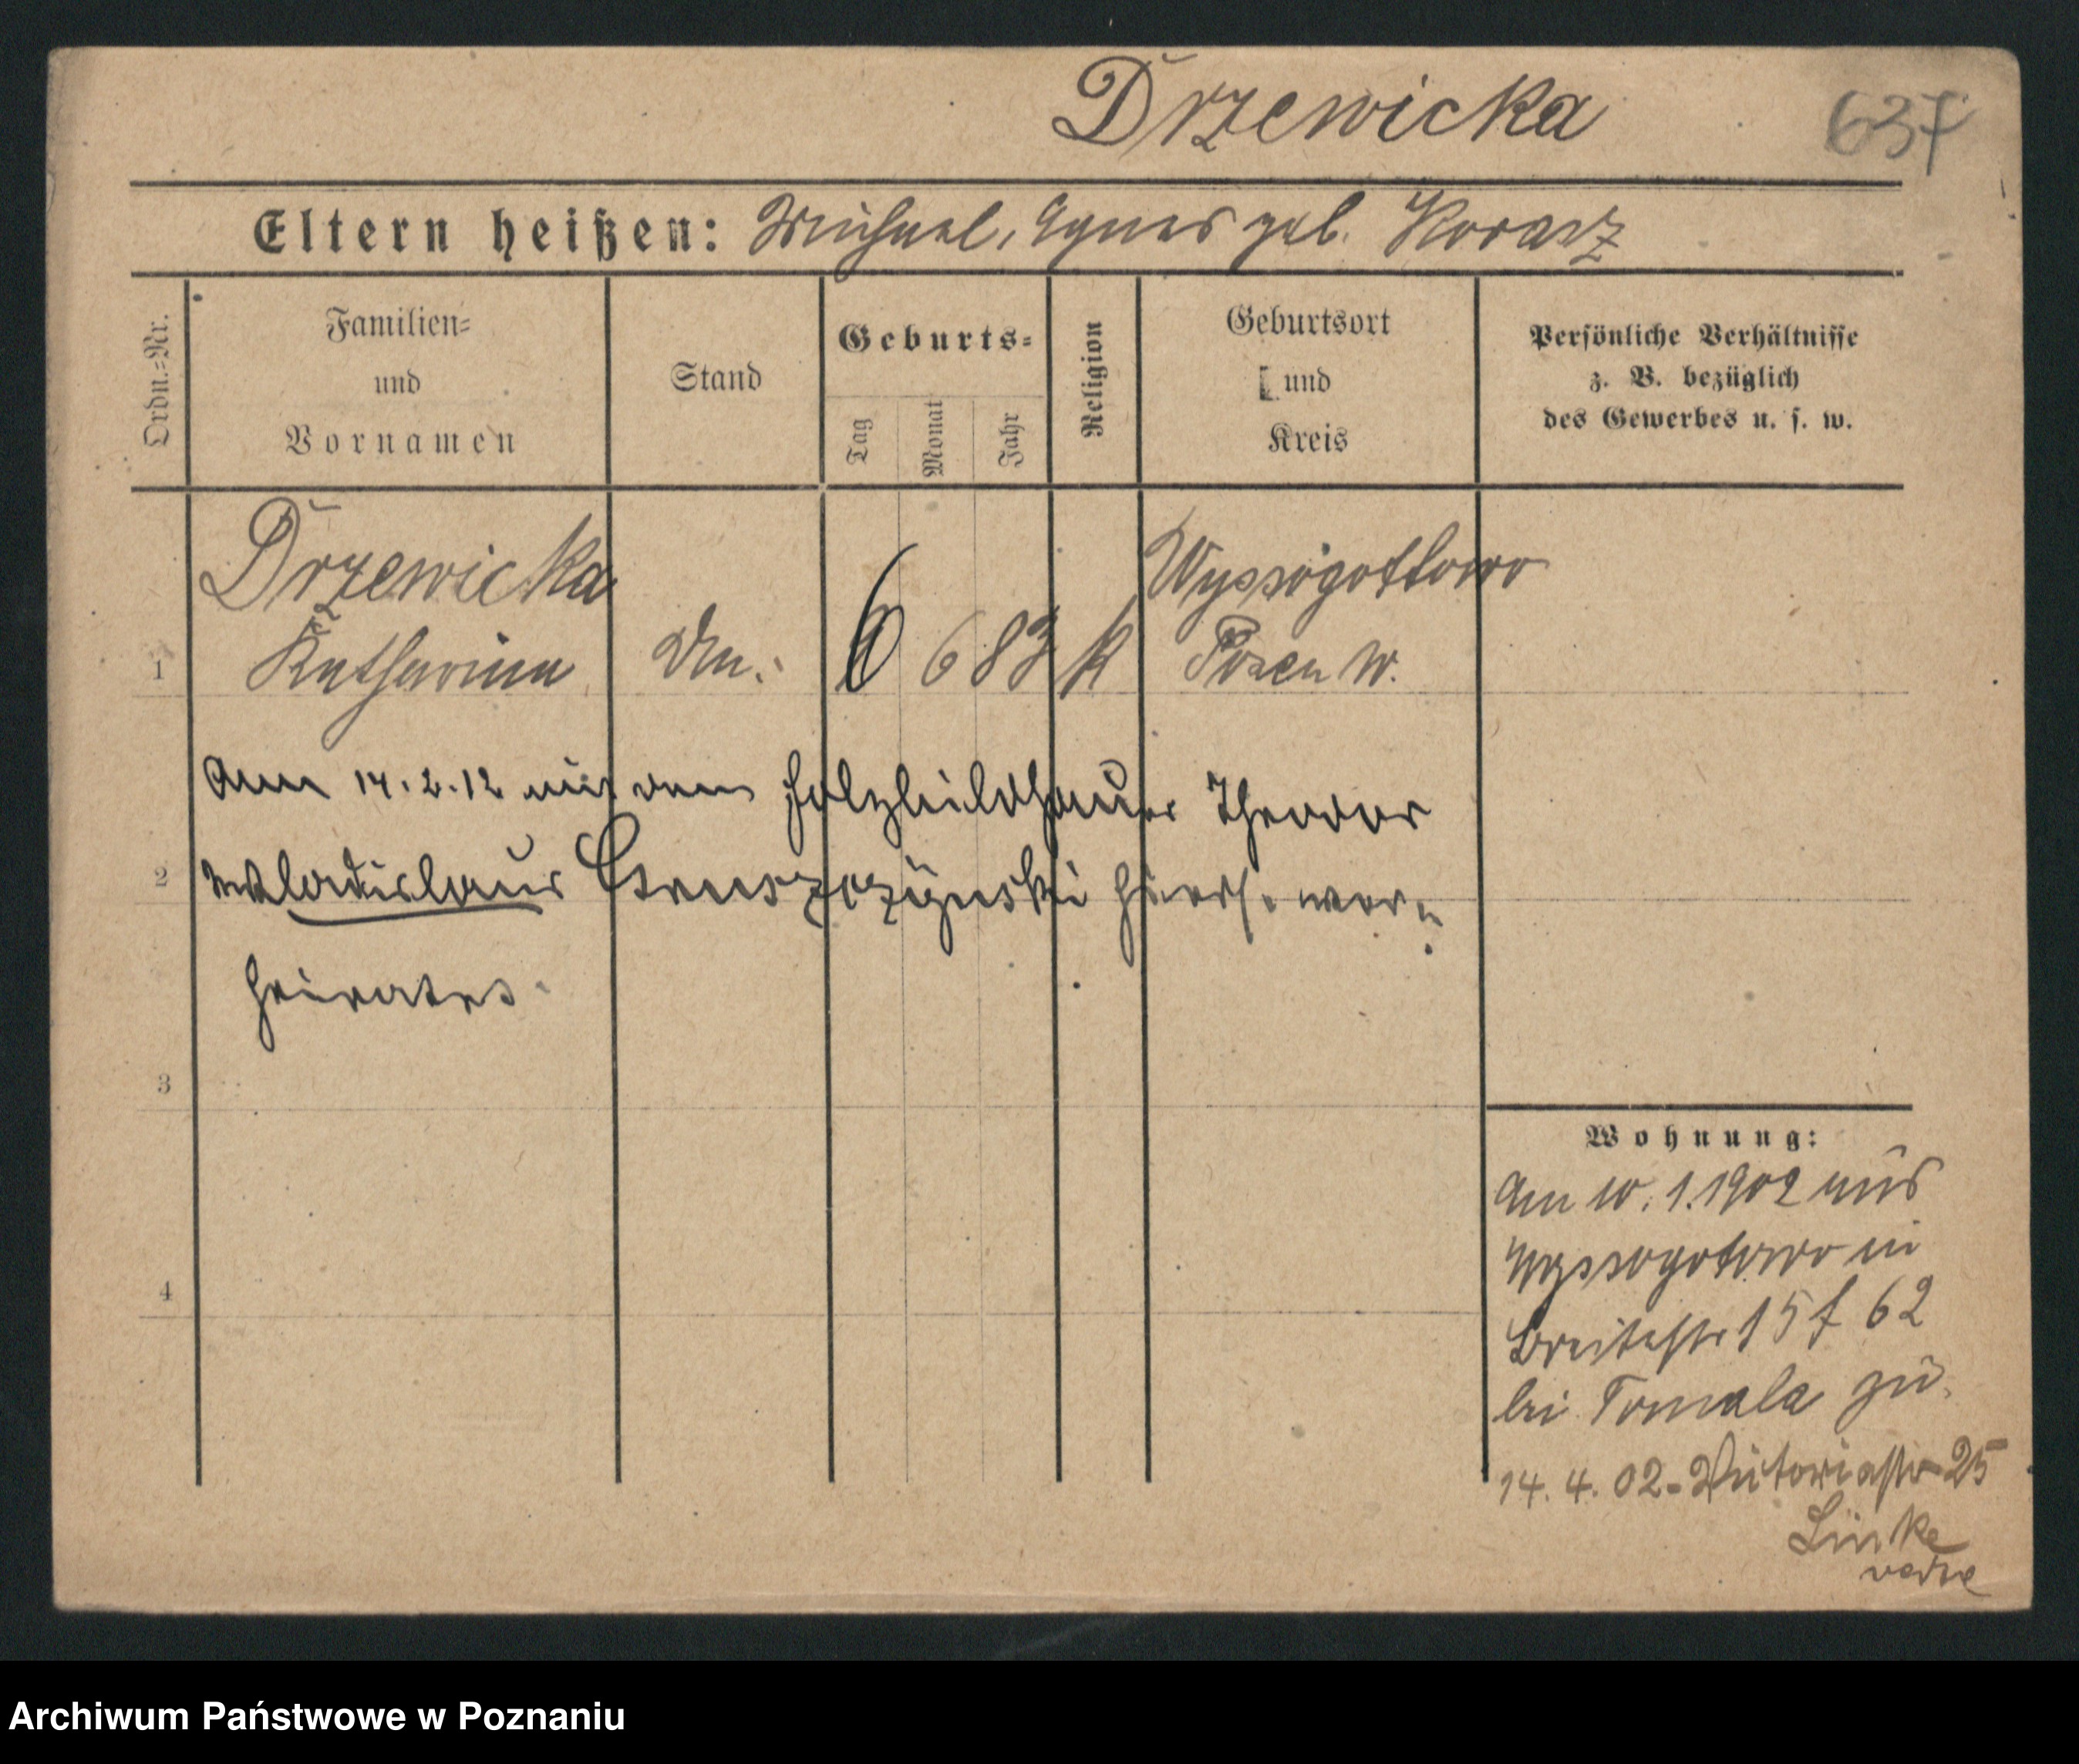 Drzewicka 637
Eltern heißen: Michael, Agnes geb. Koralz
Ordn.=Nr.
Familien=
und
Vornamen
Stand
Geburts=
Tag
Monat
Jahr
Religion
Geburtsort
und
Kreis
Persönliche Verhältnisse
z. B. bezüglich
des Gewerbes u. s. w.
Drzewicka
1 Katharina 6 6 83 K
Wyssogottowo
Posen W.
Am 14.2.12 mit dem Holzbildhauer Theodor
2 Wladislaus hiers. ver=
heiratet.
3
4
Wohnung:
Am 10.1.1902 aus
Wyssogotowo in
Breitestr 15 f 62
bei Tomala zu.
14.4.02 - Victoriastr 25
Linke